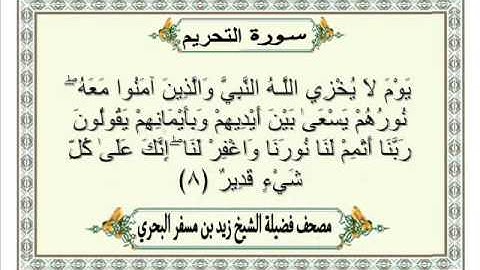 سورة التحريم
يَوْمَ لَا يُخْزِي اللَّـهُ النَّبِيَّ وَالَّذِينَ آمَنُوا مَعَهُ ۖ
نُورُهُمْ يَسْعَىٰ بَيْنَ أَيْدِيهِمْ وَبِأَيْمَانِهِمْ يَقُولُونَ
رَبَّنَا أَتْمِمْ لَنَا نُورَنَا وَاغْفِرْ لَنَا ۖ إِنَّكَ عَلَىٰ كُلِّ
شَيْءٍ قَدِيرٌ (٨)
مصحف فضيلة الشيخ زيد بن مسفر البحري